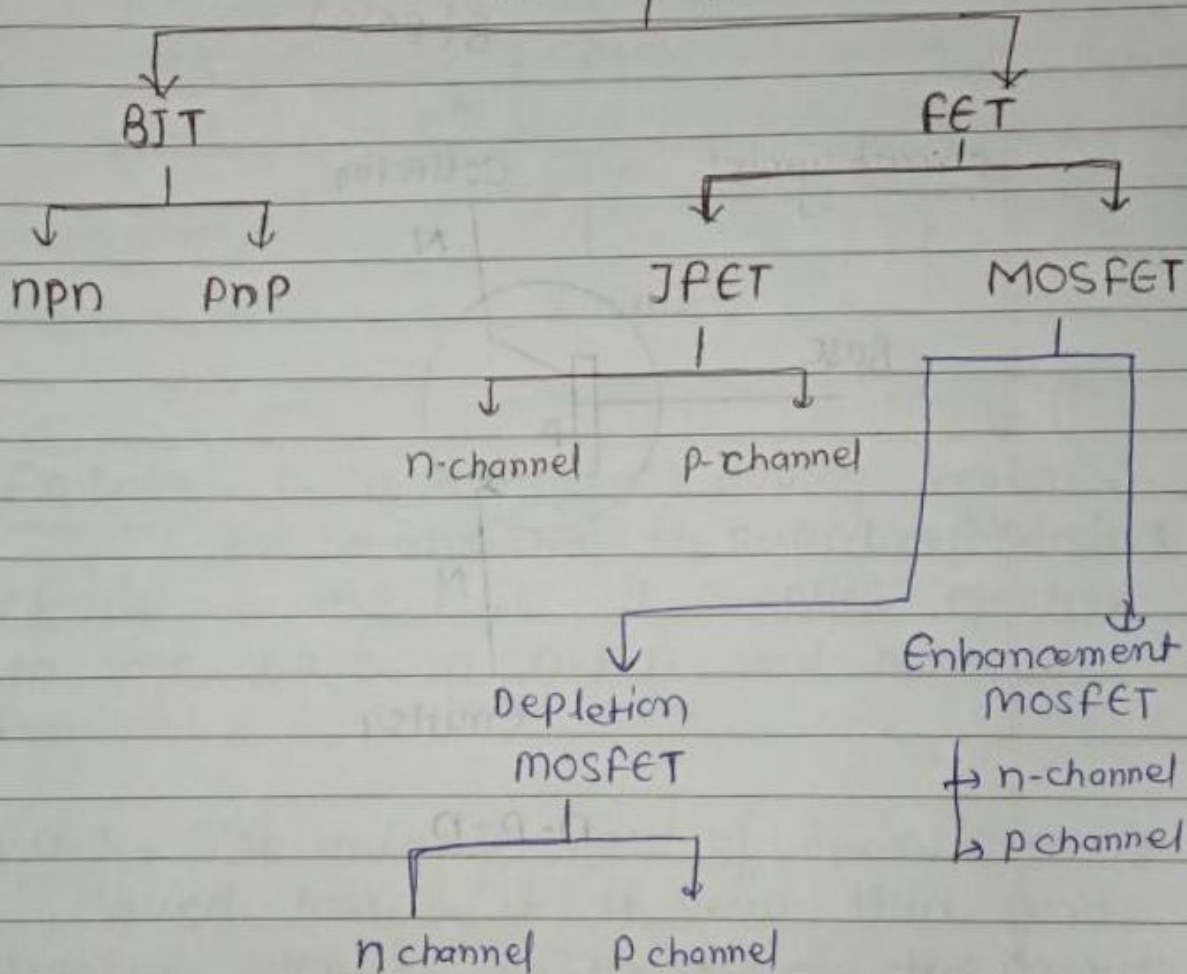 BJT
FET
npn
pnp
JFET
MOSFET
n-channel
p-channel
Enhancement
MOSFET
Depletion
MOSFET
n-channel
p channel
n channel
p channel